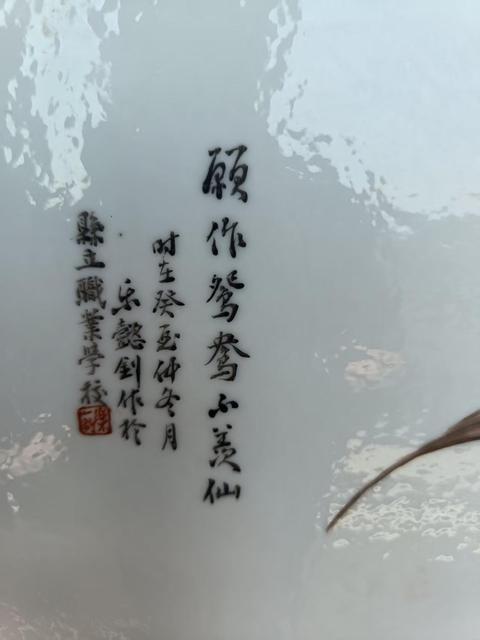 願作鴛鴦不羨仙
時在癸酉仲冬月
乐懿釗作於
縣立職業學校